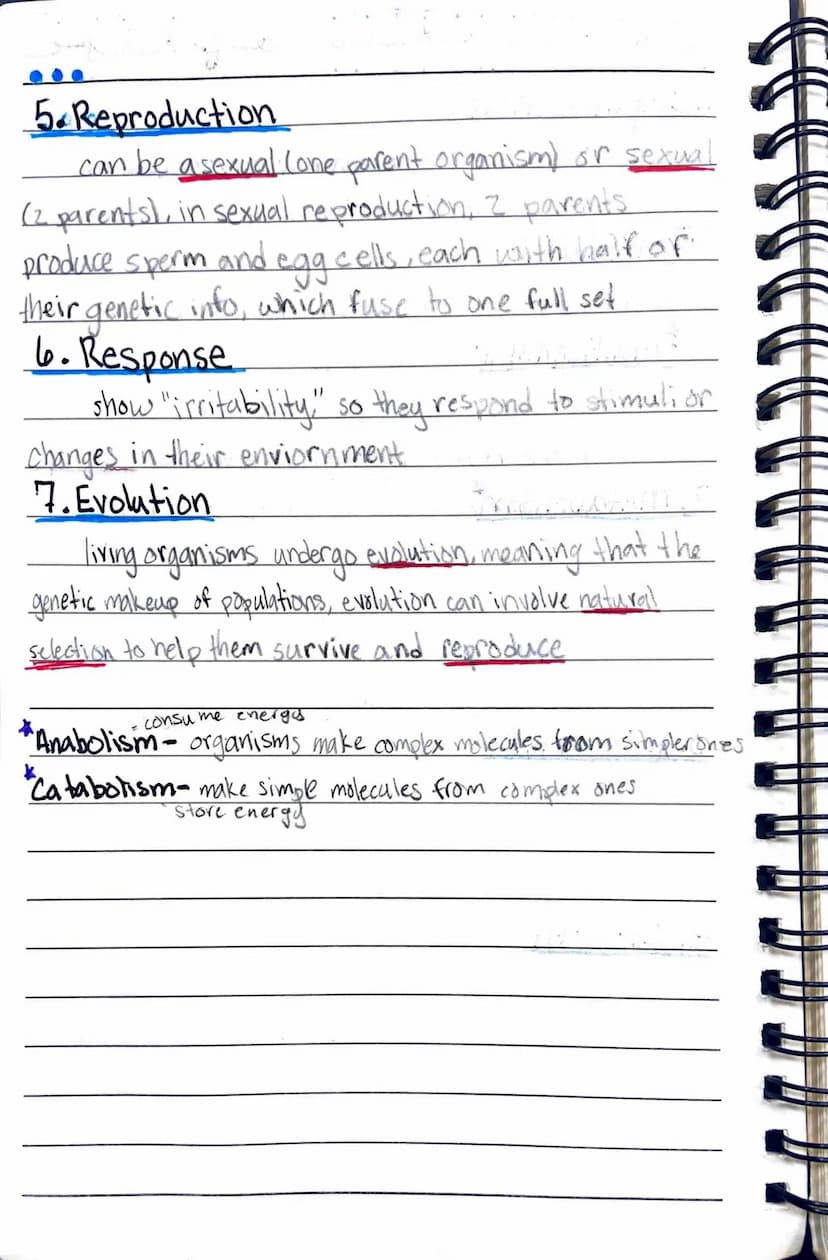 5. Reproduction
can be asexual (one parent organism) or sexual
(2 parents), in sexual reproduction, 2 parents
produce sperm and egg cells, each with half of
their genetic info, which fuse to one full set
6. Response
show "irritability," so they respond to stimuli or
changes in their enviornment
7. Evolution
living organisms undergo evolution, meaning that the
genetic makeup of populations, evolution can involve natural
selection to help them survive and reproduce
- consume energy
Anabolism - organisms make complex molecules from simpler ones
Catabolism - make simple molecules from complex ones
store energy